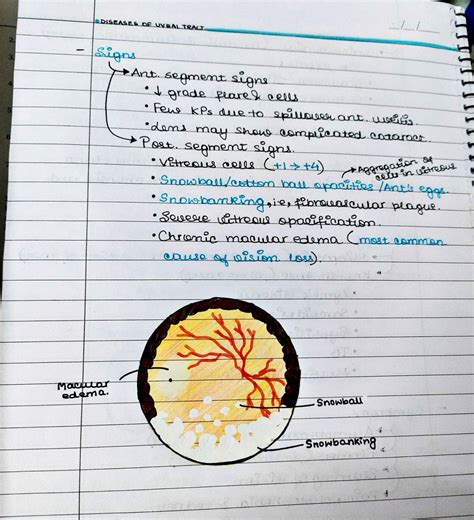 DISEASES OF UVEAL TRACT
- Signs
Ant. segment signs
• ↓ grade flare & cells
• Few KPs due to spillover ant. uveitis
• Lens may show complicated cataract.
Post. segment signs.
• Vitreous cells (+1 → +4)
Aggregation of
cells in vitreous
• Snowball/cotton ball opacities /Ant's eggs.
• Snowbanking, i.e, fibrovascular plaque.
• Severe vitreous opacification
• Chronic macular edema (most common
cause of vision loss)
Macular
edema.
Snowball
Snowbanking